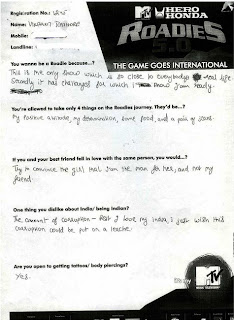 Registration No.:
MTV HERO HONDA
Name:
ROADIES
Mobile:
5.0
Landline:
THE GAME GOES INTERNATIONAL
You wanna be a Roadie because...?
This is the only show which is so close to everybody's real life
it has challenges for which I know I'm ready.
You're allowed to take only 4 things on the Roadies journey. They'd be...?
My positive attitude, my determination, some food, and a pair of
If you and your best friend fell in love with the same person, you would...?
Try n convince the girl that I am the man for her, and not my
friend.
One thing you dislike about India/ being Indian?
The amount of corruption - But I love my India, I just wish this
corruption could be put on a
Are you open to getting tattoos/ body piercings?
Yes.
MTV